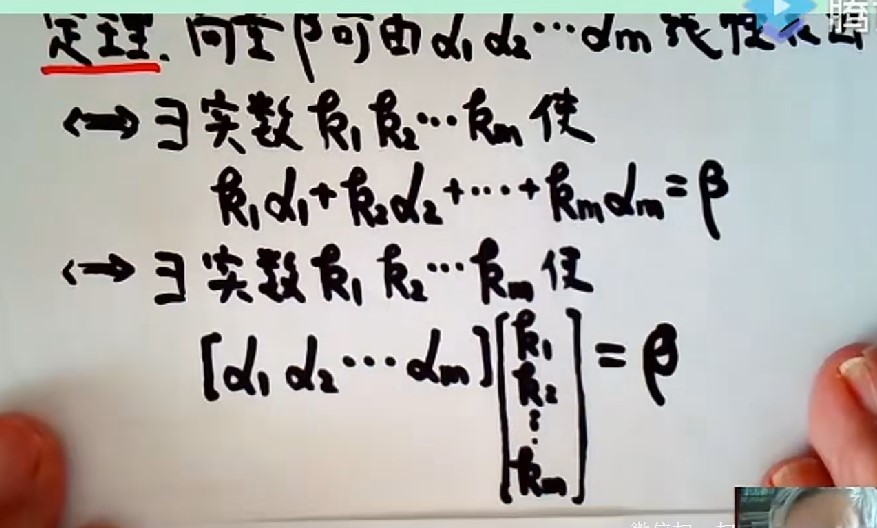 定理. 向量β可由α₁ α₂ ⋯ αm 线性表出
⟺ ∃ 实数 k₁ k₂ ⋯ km 使
k₁α₁ + k₂α₂ + ⋯ + kmαm = β
⟺ ∃ 实数 k₁ k₂ ⋯ km 使
[α₁ α₂ ⋯ αm] [k₁ k₂ ⋮ km] = β
腾